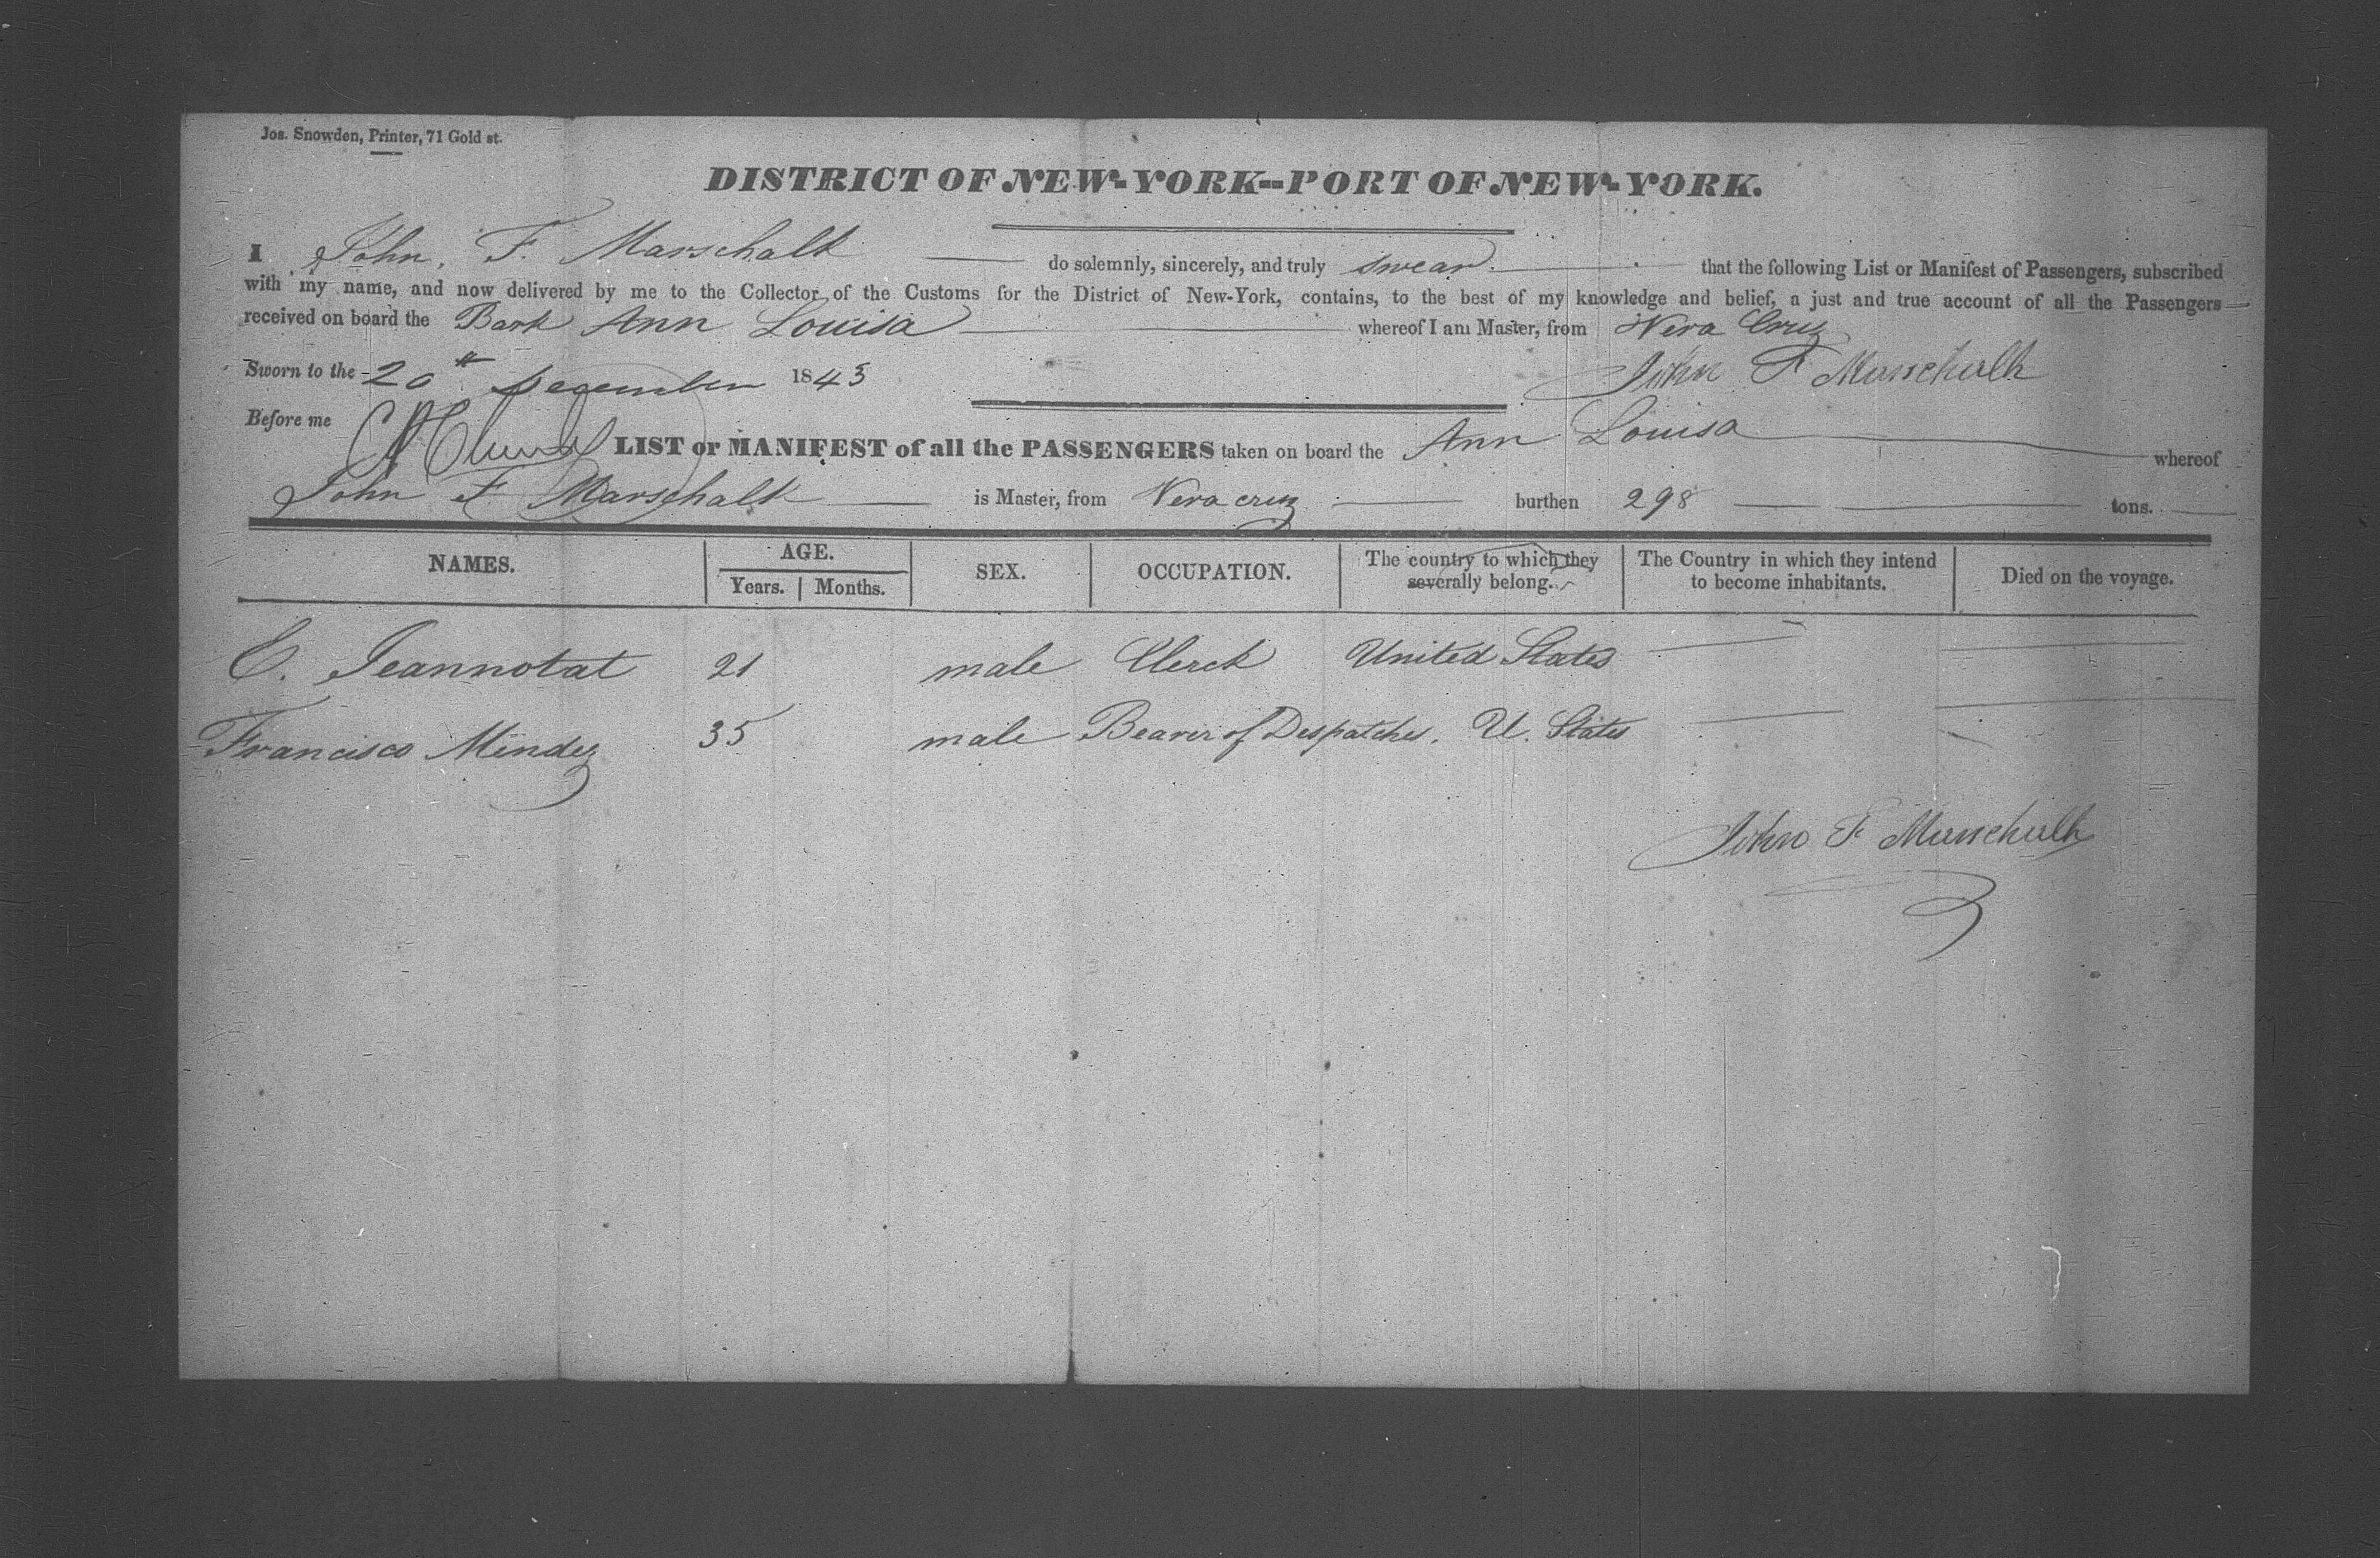 Jos. Snowden, Printer, 71 Gold st.
DISTRICT OF NEW-YORK--PORT OF NEW-YORK.
I John. F. Marschalk do solemnly, sincerely, and truly swear that the following List or Manifest of Passengers, subscribed
with my name, and now delivered by me to the Collector of the Customs for the District of New-York, contains, to the best of my knowledge and belief, a just and true account of all the Passengers
received on board the Bark Ann Louisa whereof I am Master, from Vera Cruz
Sworn to the 20th December 1843 John F Marschalk
Before me
LIST or MANIFEST of all the PASSENGERS taken on board the Ann Louisa whereof
John F. Marschalk is Master, from Vera cruz burthen 298 tons.
NAMES. AGE. Years. Months. SEX. OCCUPATION. The country to which they severally belong. The Country in which they intend to become inhabitants. Died on the voyage.
E. Jeannotat 21 male Clerck United States
Francisco Mendez 35 male Bearer of Despatches. U. States
John F Marschalk